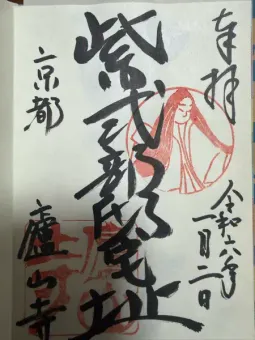 奉拝
令和六年
一月二日
紫式部邸宅址
京都
廬山寺